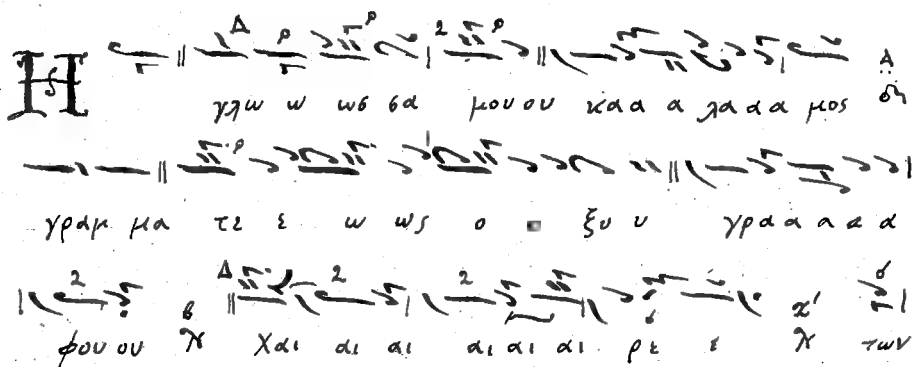 Η γλω ω ωσ σα μου ου κα α α λα α α μος
γραμ μα τε ε ω ως ο ξυ υ γρα α α α α
φου ου χαι αι αι αι αι αι ρε ε των